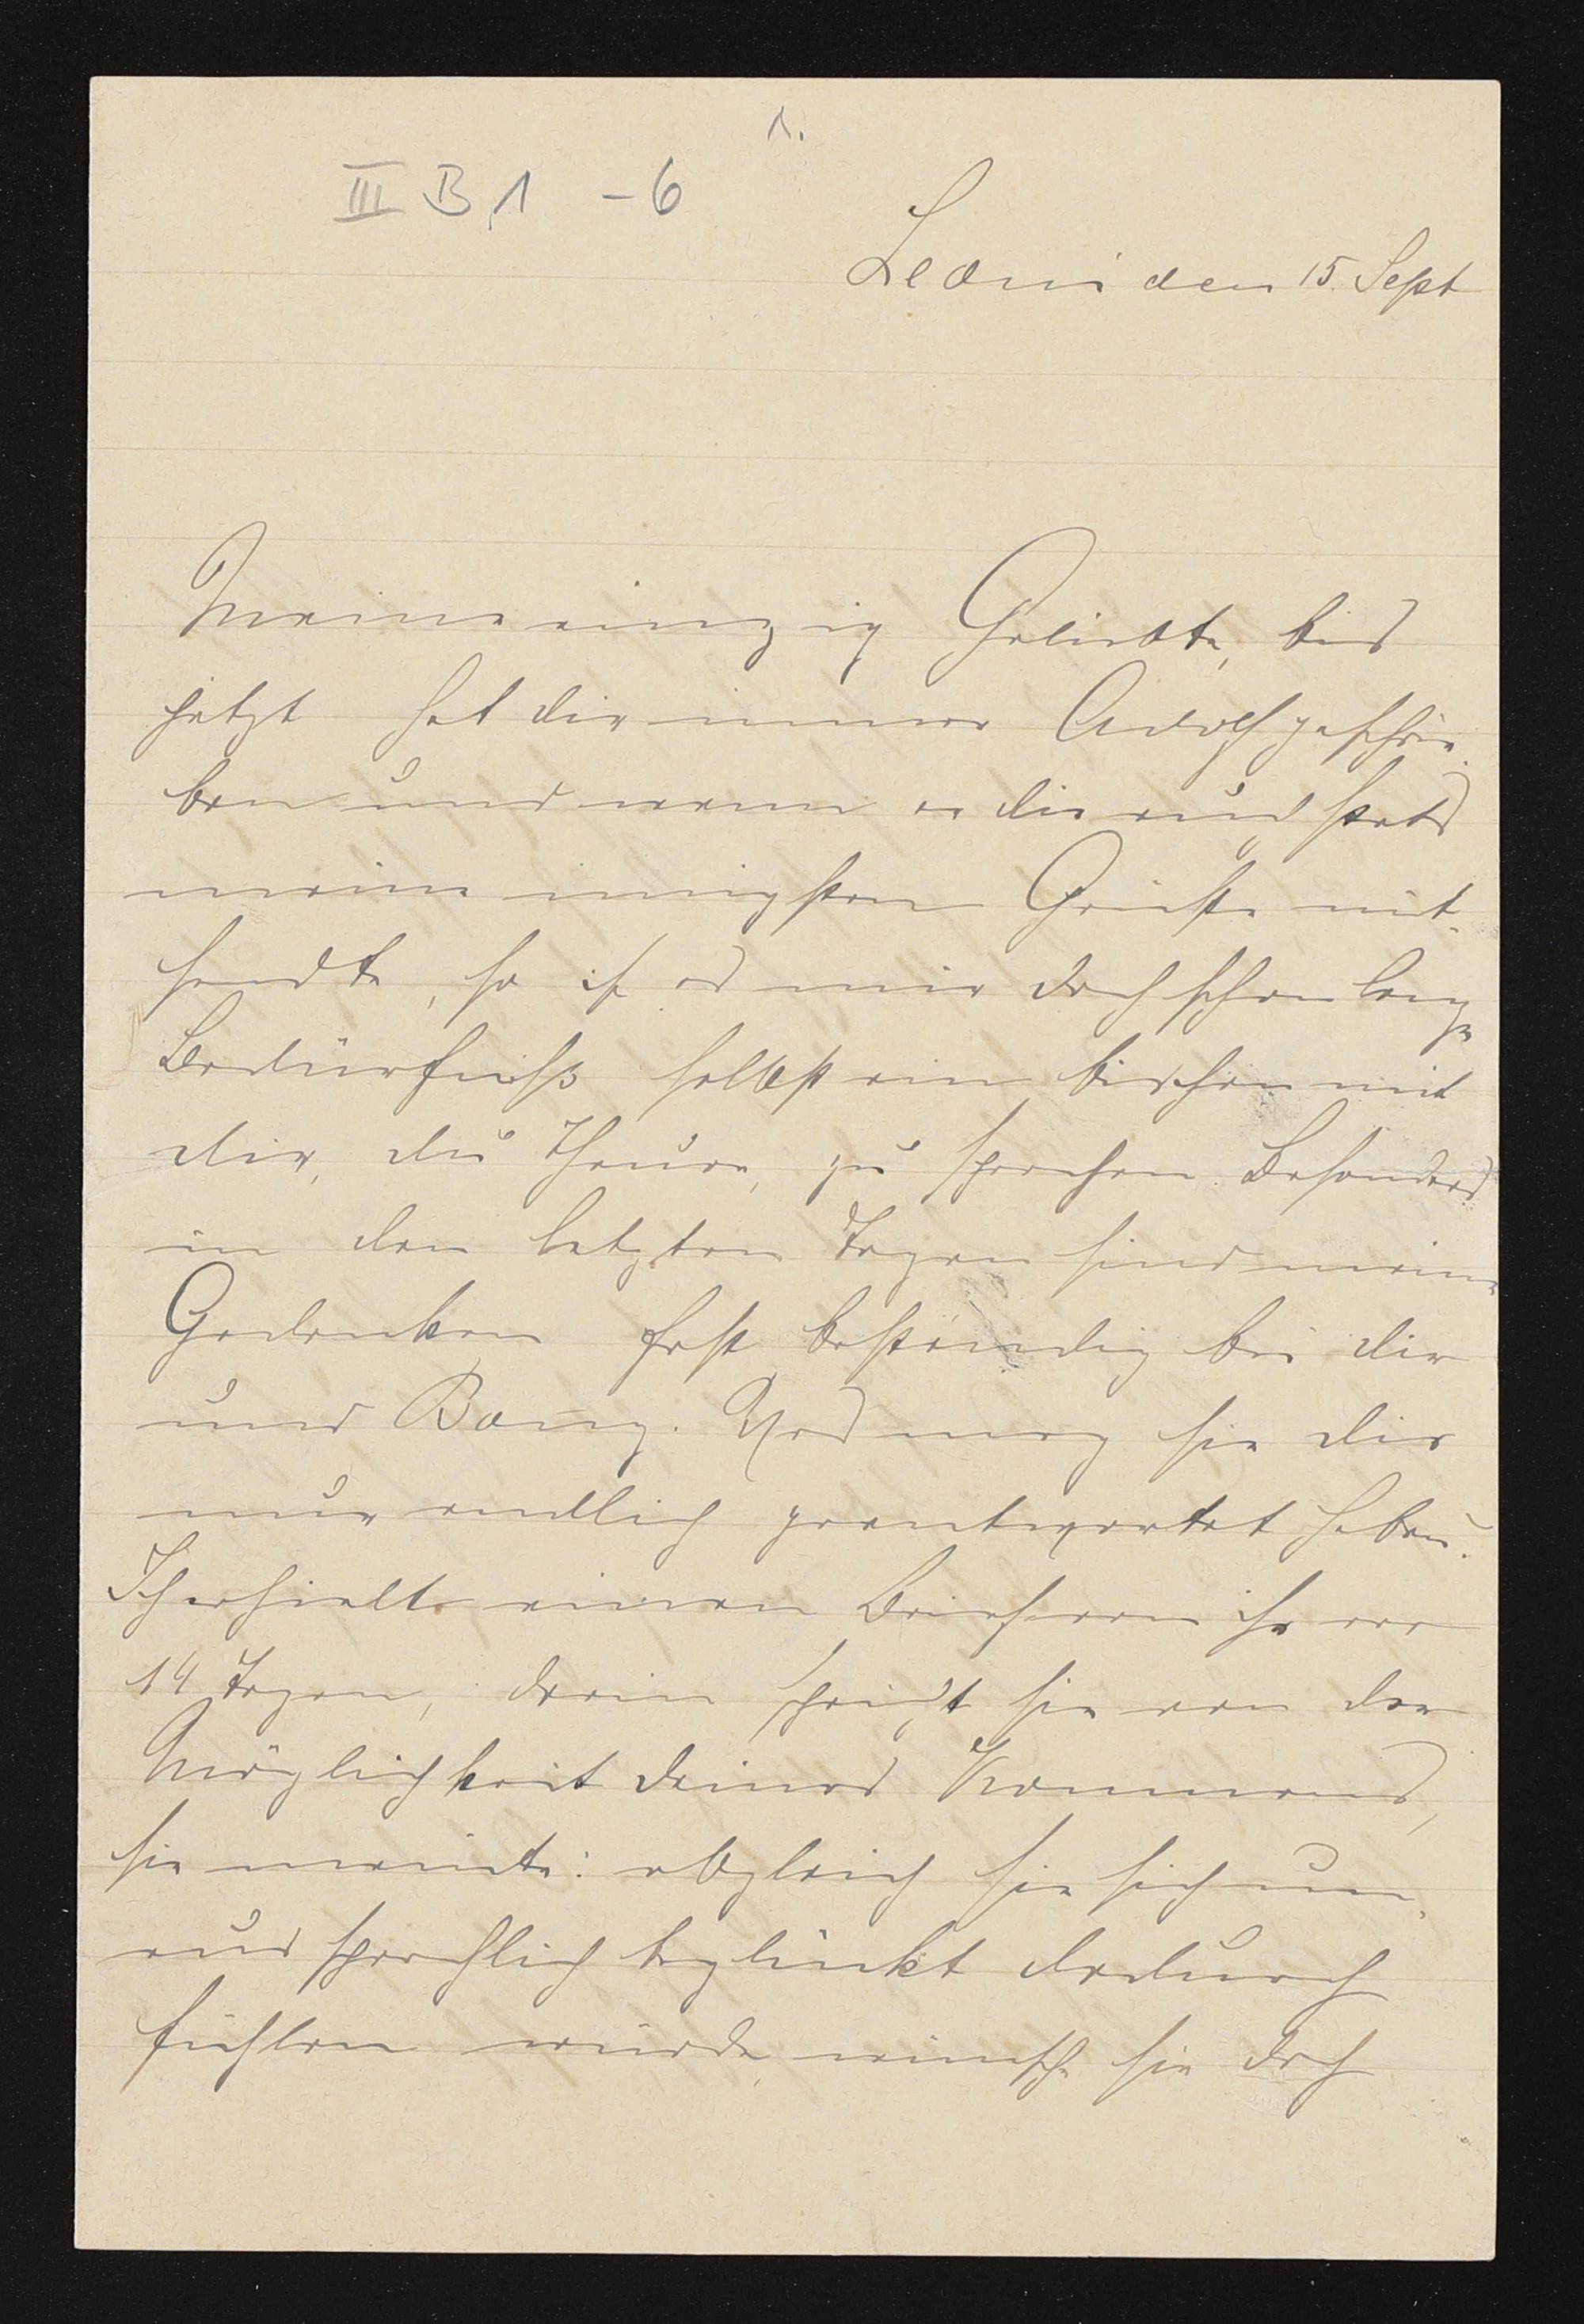 1.
III B,1 - 6
Ledrini den 15. Sept
Meine einzig Geliebte, bis
jetzt hat dir immer Adolf geschrie-
ben und wenn er dir auch stets
meine innigsten Grüße mit-
sendte, so ist es mir doch schon lange
Bedürfniß selbst ein bischen mit
dir, du Theure, zu sprechen. Besonders
in den letzten Tagen sind meine
Gedanken fast beständig bei dir
und Bang. Was mag sie dir
nur endlich geantwortet haben?
Ich erhielt einen Brief von ihr vor
14 Tagen, darin spricht sie von der
Möglichkeit deines Kommens,
sie meinte: obgleich sie sich un-
aussprechlich beglückt dadurch
fühlen würde, wünsche sie doch